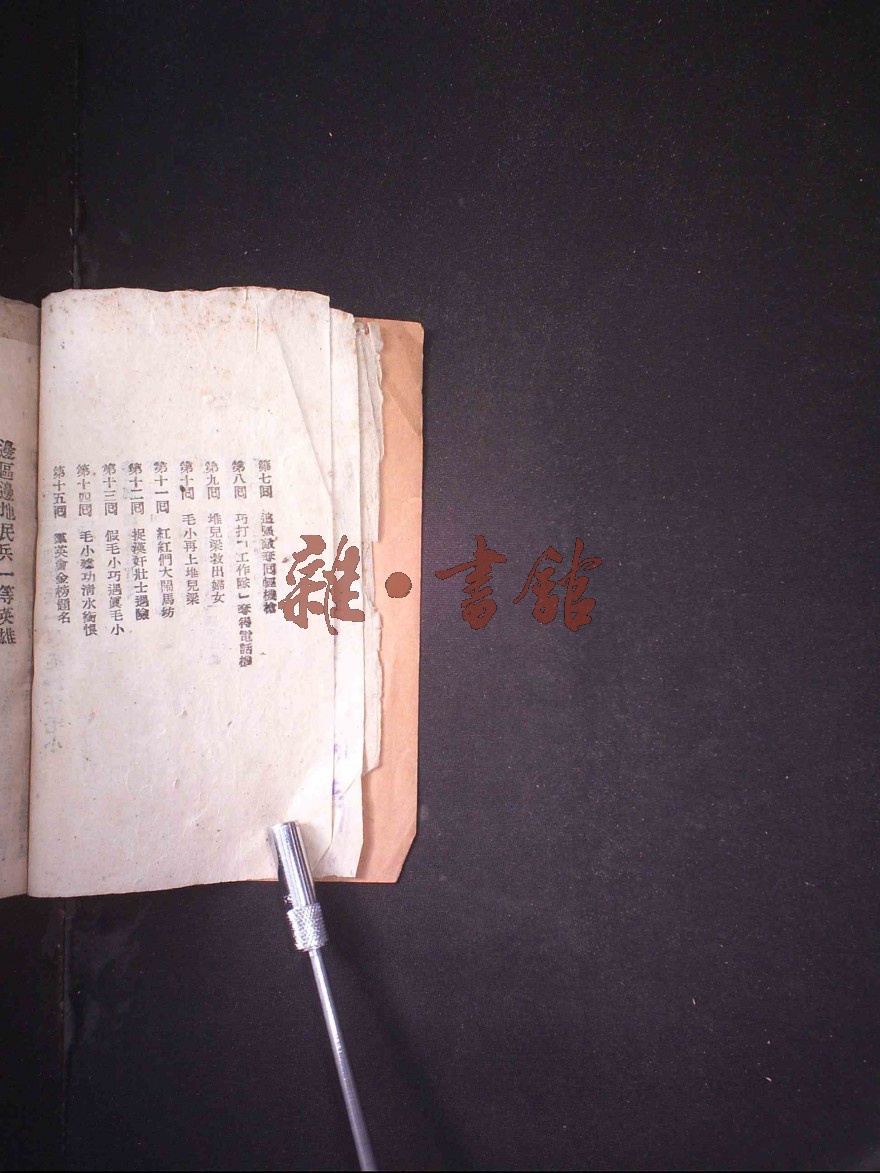 第七回 追殘敵奪回輕機槍
第八回 巧打「工作隊」奪得電話機
第九回 堆兒梁救出婦女
第十回 毛小再上堆兒梁
第十一回 紅紅們大鬧馬坊
第十二回 捉漢奸壯士遇險
第十三回 假毛小巧遇眞毛小
第十四回 毛小 功清水銜恨
第十五回 羣英會金榜題名
邊區邊地民兵一等英雄
雜·書館